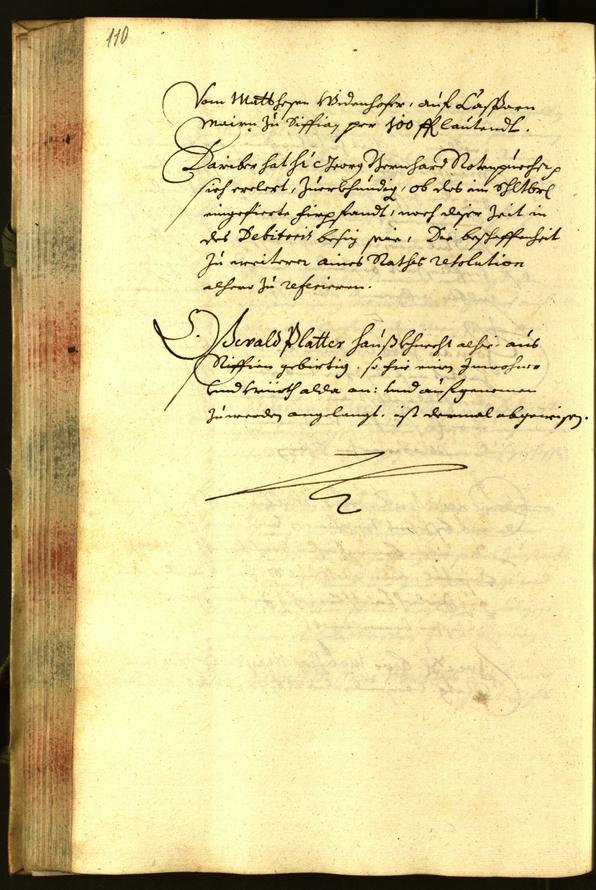 110
Vom Matthesen Widenhofer, auf Casparn
Mairn zu Siffian per 100 fl lautendt.
Darüber hat sich Georg Bernhard Rotenpuecher,
sich erclert, zuerkhündig, ob dis im Schltbrf
eingesezte hirpfandt, noch diser Zeit in
des Debitoris besiz seie, Die beschaffenheit
zu weiterer aines Rathes resolution
alhero zu referieren.
Oswald Platter haußkhnecht alhie, aus
Riffian gebirtig, so für einen Inwohner
und würth alda an: und aufgenomen
zuwerden angelangt. ist dermal abgewisen.